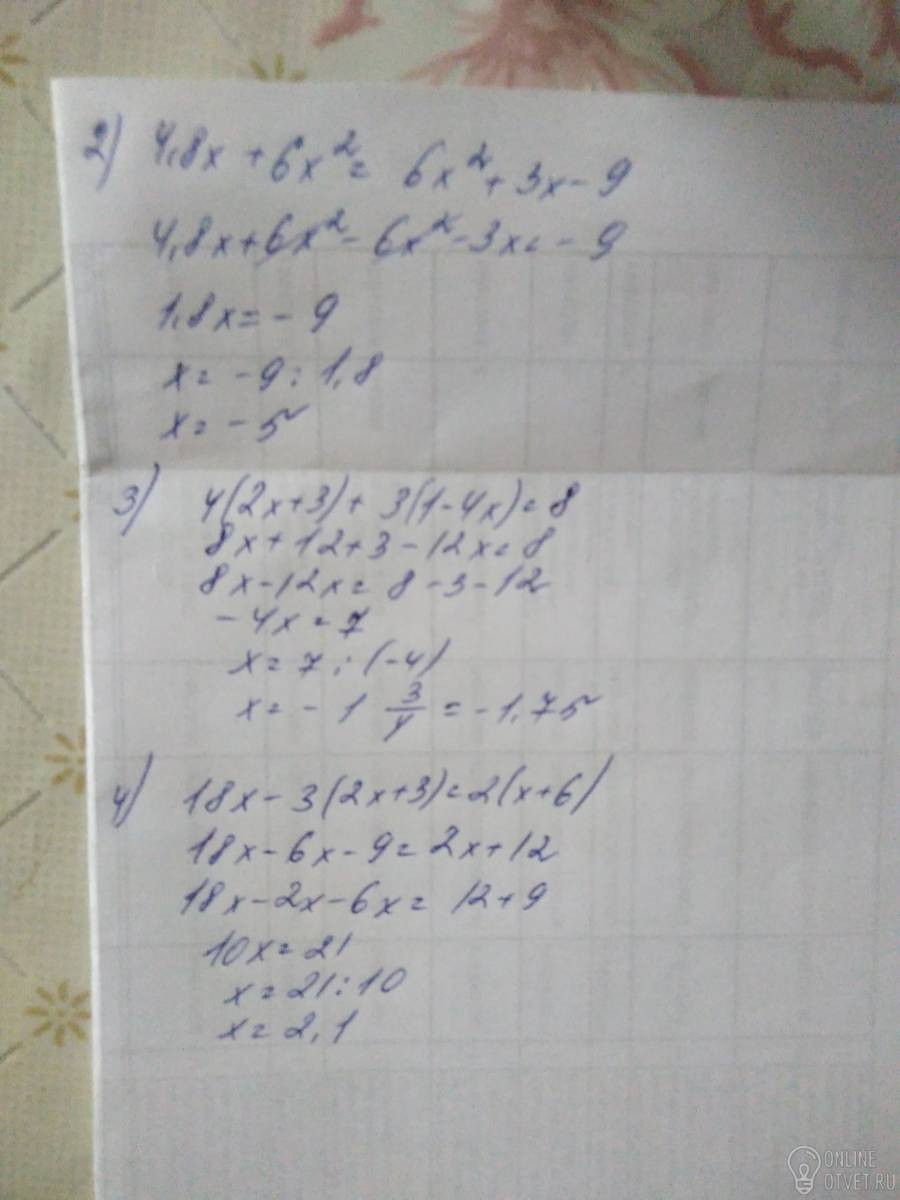 2) 4,8x + 6x² = 6x² + 3x - 9
4,8x + 6x² - 6x² - 3x = - 9
1,8x = - 9
x = - 9 : 1,8
x = - 5
3) 4(2x+3) + 3(1-4x) = 8
8x + 12 + 3 - 12x = 8
8x - 12x = 8 - 3 - 12
- 4x = 7
x = 7 : (-4)
x = - 1 3/4 = - 1,75
4) 18x - 3(2x+3) = 2(x+6)
18x - 6x - 9 = 2x + 12
18x - 2x - 6x = 12 + 9
10x = 21
x = 21 : 10
x = 2,1
ONLINE
OTVET.RU